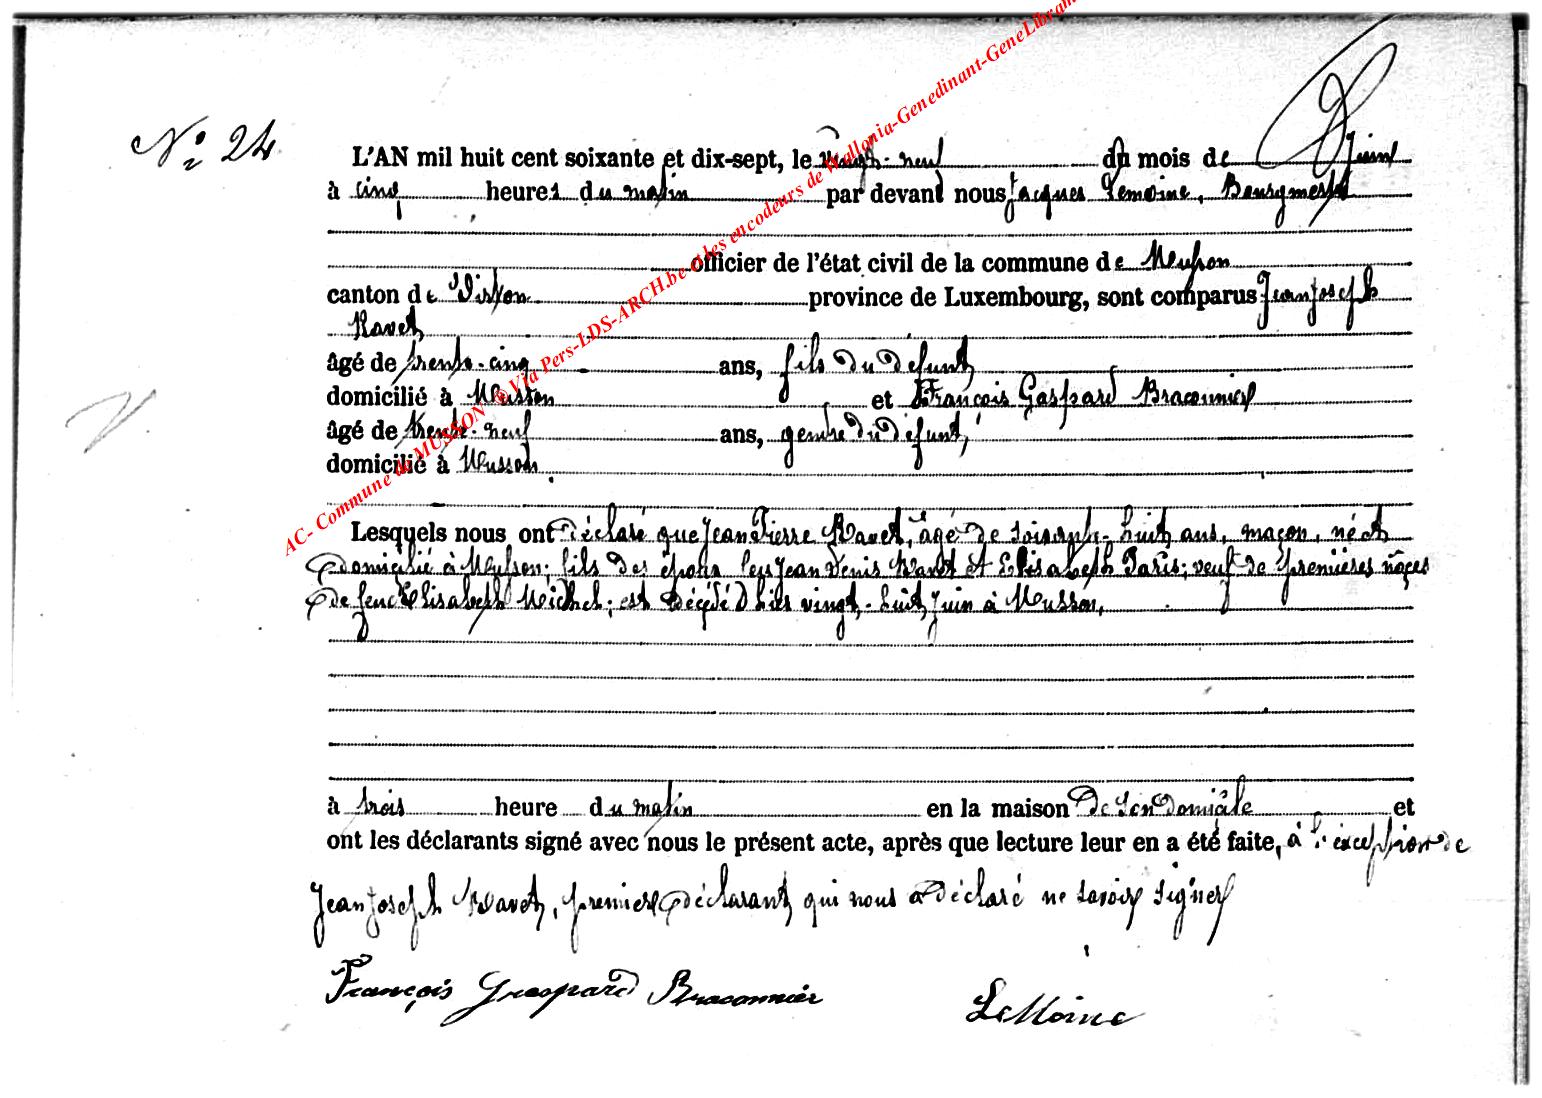 N° 24
L'AN mil huit cent soixante et dix-sept, le vingt-neuf du mois de Juin
à cinq heures du matin par devant nous Jacques Lemoine, Bourgmestre
officier de l'état civil de la commune de Musson
canton de Virton province de Luxembourg, sont comparus Jean Joseph
Ravet
âgé de trente-cinq ans, fils du défunt,
domicilié à Musson et François Gaspard Braconnier
âgé de trente-neuf ans, gendre du défunt,
domicilié à Musson
Lesquels nous ont déclaré que Jean Pierre Ravet, âgé de soixante-huit ans, maçon, né et
domicilié à Musson; fils des époux feu Jean Denis Ravet et Elisabeth Paris; veuf de premières nôces
de feue Elisabeth Michel; est décédé hier vingt-huit Juin à Musson,
à trois heure du matin en la maison de son domicile et
ont les déclarants signé avec nous le présent acte, après que lecture leur en a été faite, à l'exception de
Jean Joseph Ravet, premier déclarant qui nous a déclaré ne savoir signer
François Gaspard Braconnier LeMoine
AC- Commune de MUSSON @ Via Pers-LDS-ARCH.be et les encodeurs de Wallonia-Genedinant-GeneLibram